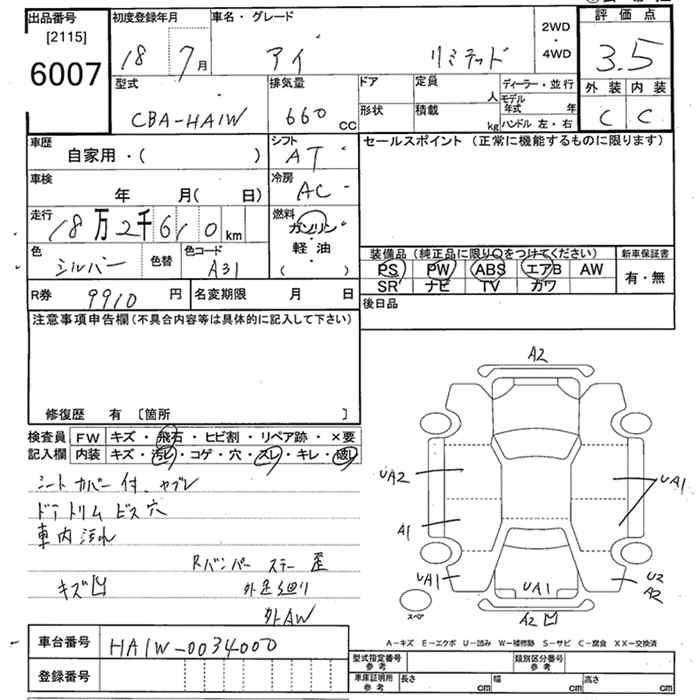 出品番号
[2115]
6007
初度登録年月
18 7月
車名・グレード
アイ リミテッド
2WD
・
4WD
評価点
3.5
外装 内装
C C
型式
CBA-HA1W
排気量
660 cc
ドア
形状
定員
人
積載
kg
ディーラー・並行
モデル年式 年
ハンドル 左・右
車歴
自家用・( )
シフト
AT
車検
年 月(日)
冷房
AC
走行
18万2千610km
燃料
ガソリン
・
軽油
( )
色
シルバー
色替
色コード
A31
R券
9910円
名変期限 月 日
セールスポイント(正常に機能するものに限ります)
装備品(純正品に限り〇をつけてください)
新車保証書
PS PW ABS エアB AW
SR ナビ TV ガワ
有・無
後日品
注意事項申告欄(不具合内容等は具体的に記入して下さい)
修復歴 有 [箇所 ]
検査員
記入欄
FW キズ・飛石・ヒビ割・リペア跡・×要
内装 キズ・汚レ・コゲ・穴・スレ・キレ・破レ
シートカバー付、ヤブレ
ドアトリムビス穴
車内汚れ
Rバンパーステー歪
キズ凹
外AW
A2
UA2
A1
UA1
UA1
UA1
U2
A2
スペア
A2凹
A-キズ E-エクボ U-凹み W-補修跡 S-サビ C-腐食 XX-交換済
車台番号
HA1W-0034000
登録番号
型式指定番号
参考
類別区分番号
参考
車庫証明用
参考
長さ cm
幅 cm
高さ cm